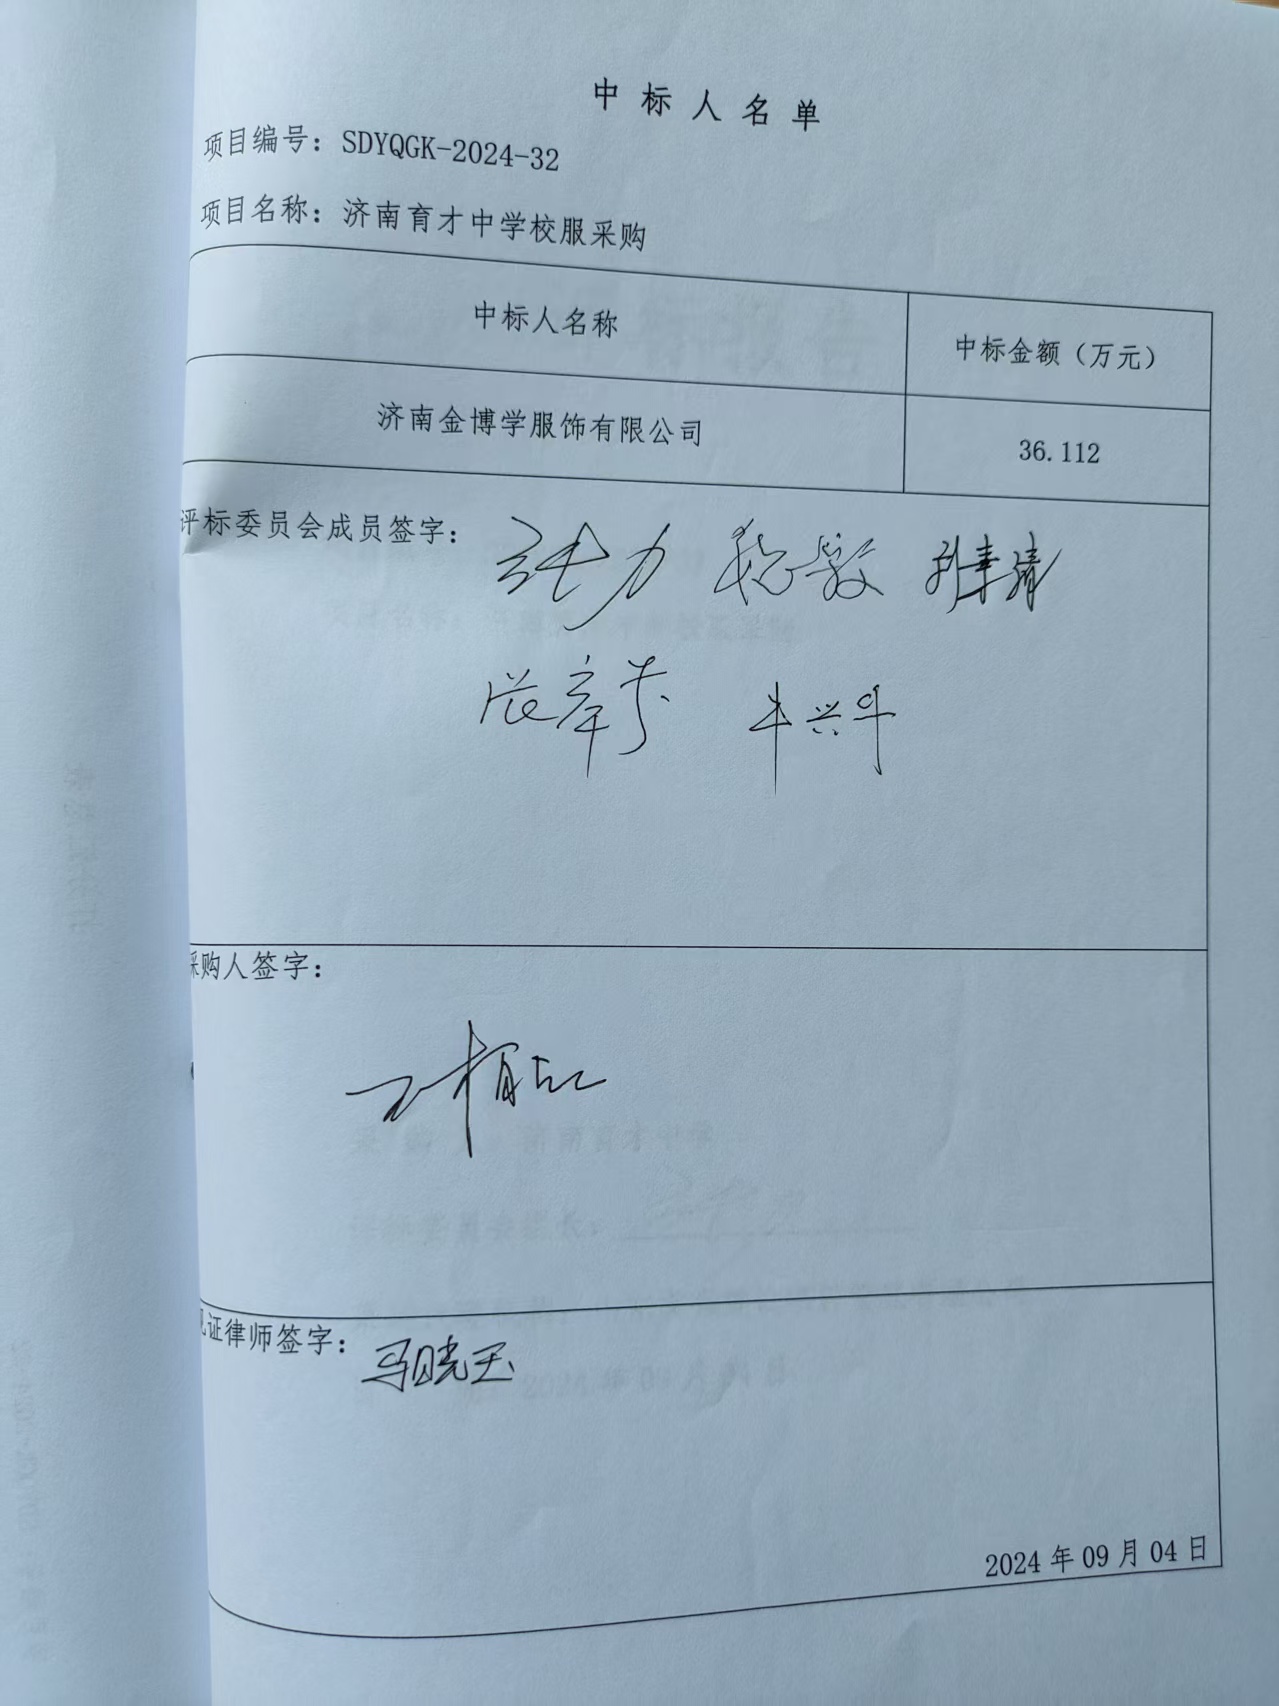 中标人名单
项目编号：SDYQGK-2024-32
项目名称：济南育才中学校服采购
中标人名称 中标金额（万元）
济南金博学服饰有限公司 36.112
评标委员会成员签字：张力
采购人签字：
见证律师签字：马晓玉
2024年09月04日